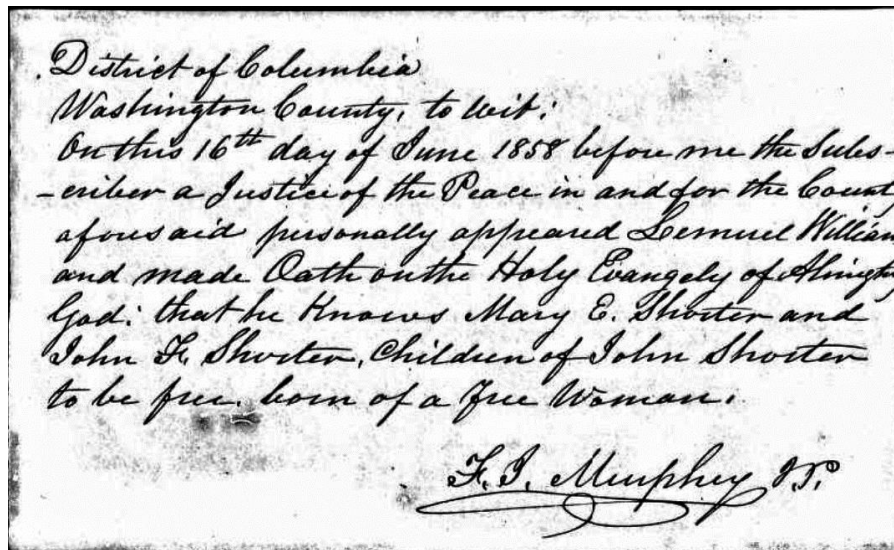 District of Columbia
Washington County, to wit:
On this 16th day of June 1858 before me the Subs-
-criber a Justice of the Peace in and for the County
aforesaid personally appeared Lemuel William
and made Oath on the Holy Evangely of Almighty
God: that he Knows Mary E. Shorter and
John F. Shorter, Children of John Shorter
to be free, born of a Free Woman.
F. I. Murphey J.P.